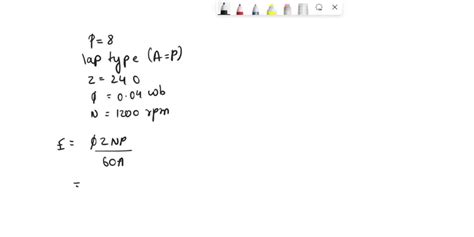 P = 8
lap type (A = P)
Z = 240
ϕ = 0.04 wb
N = 1200 rpm
E = ϕZNP / 60A
=